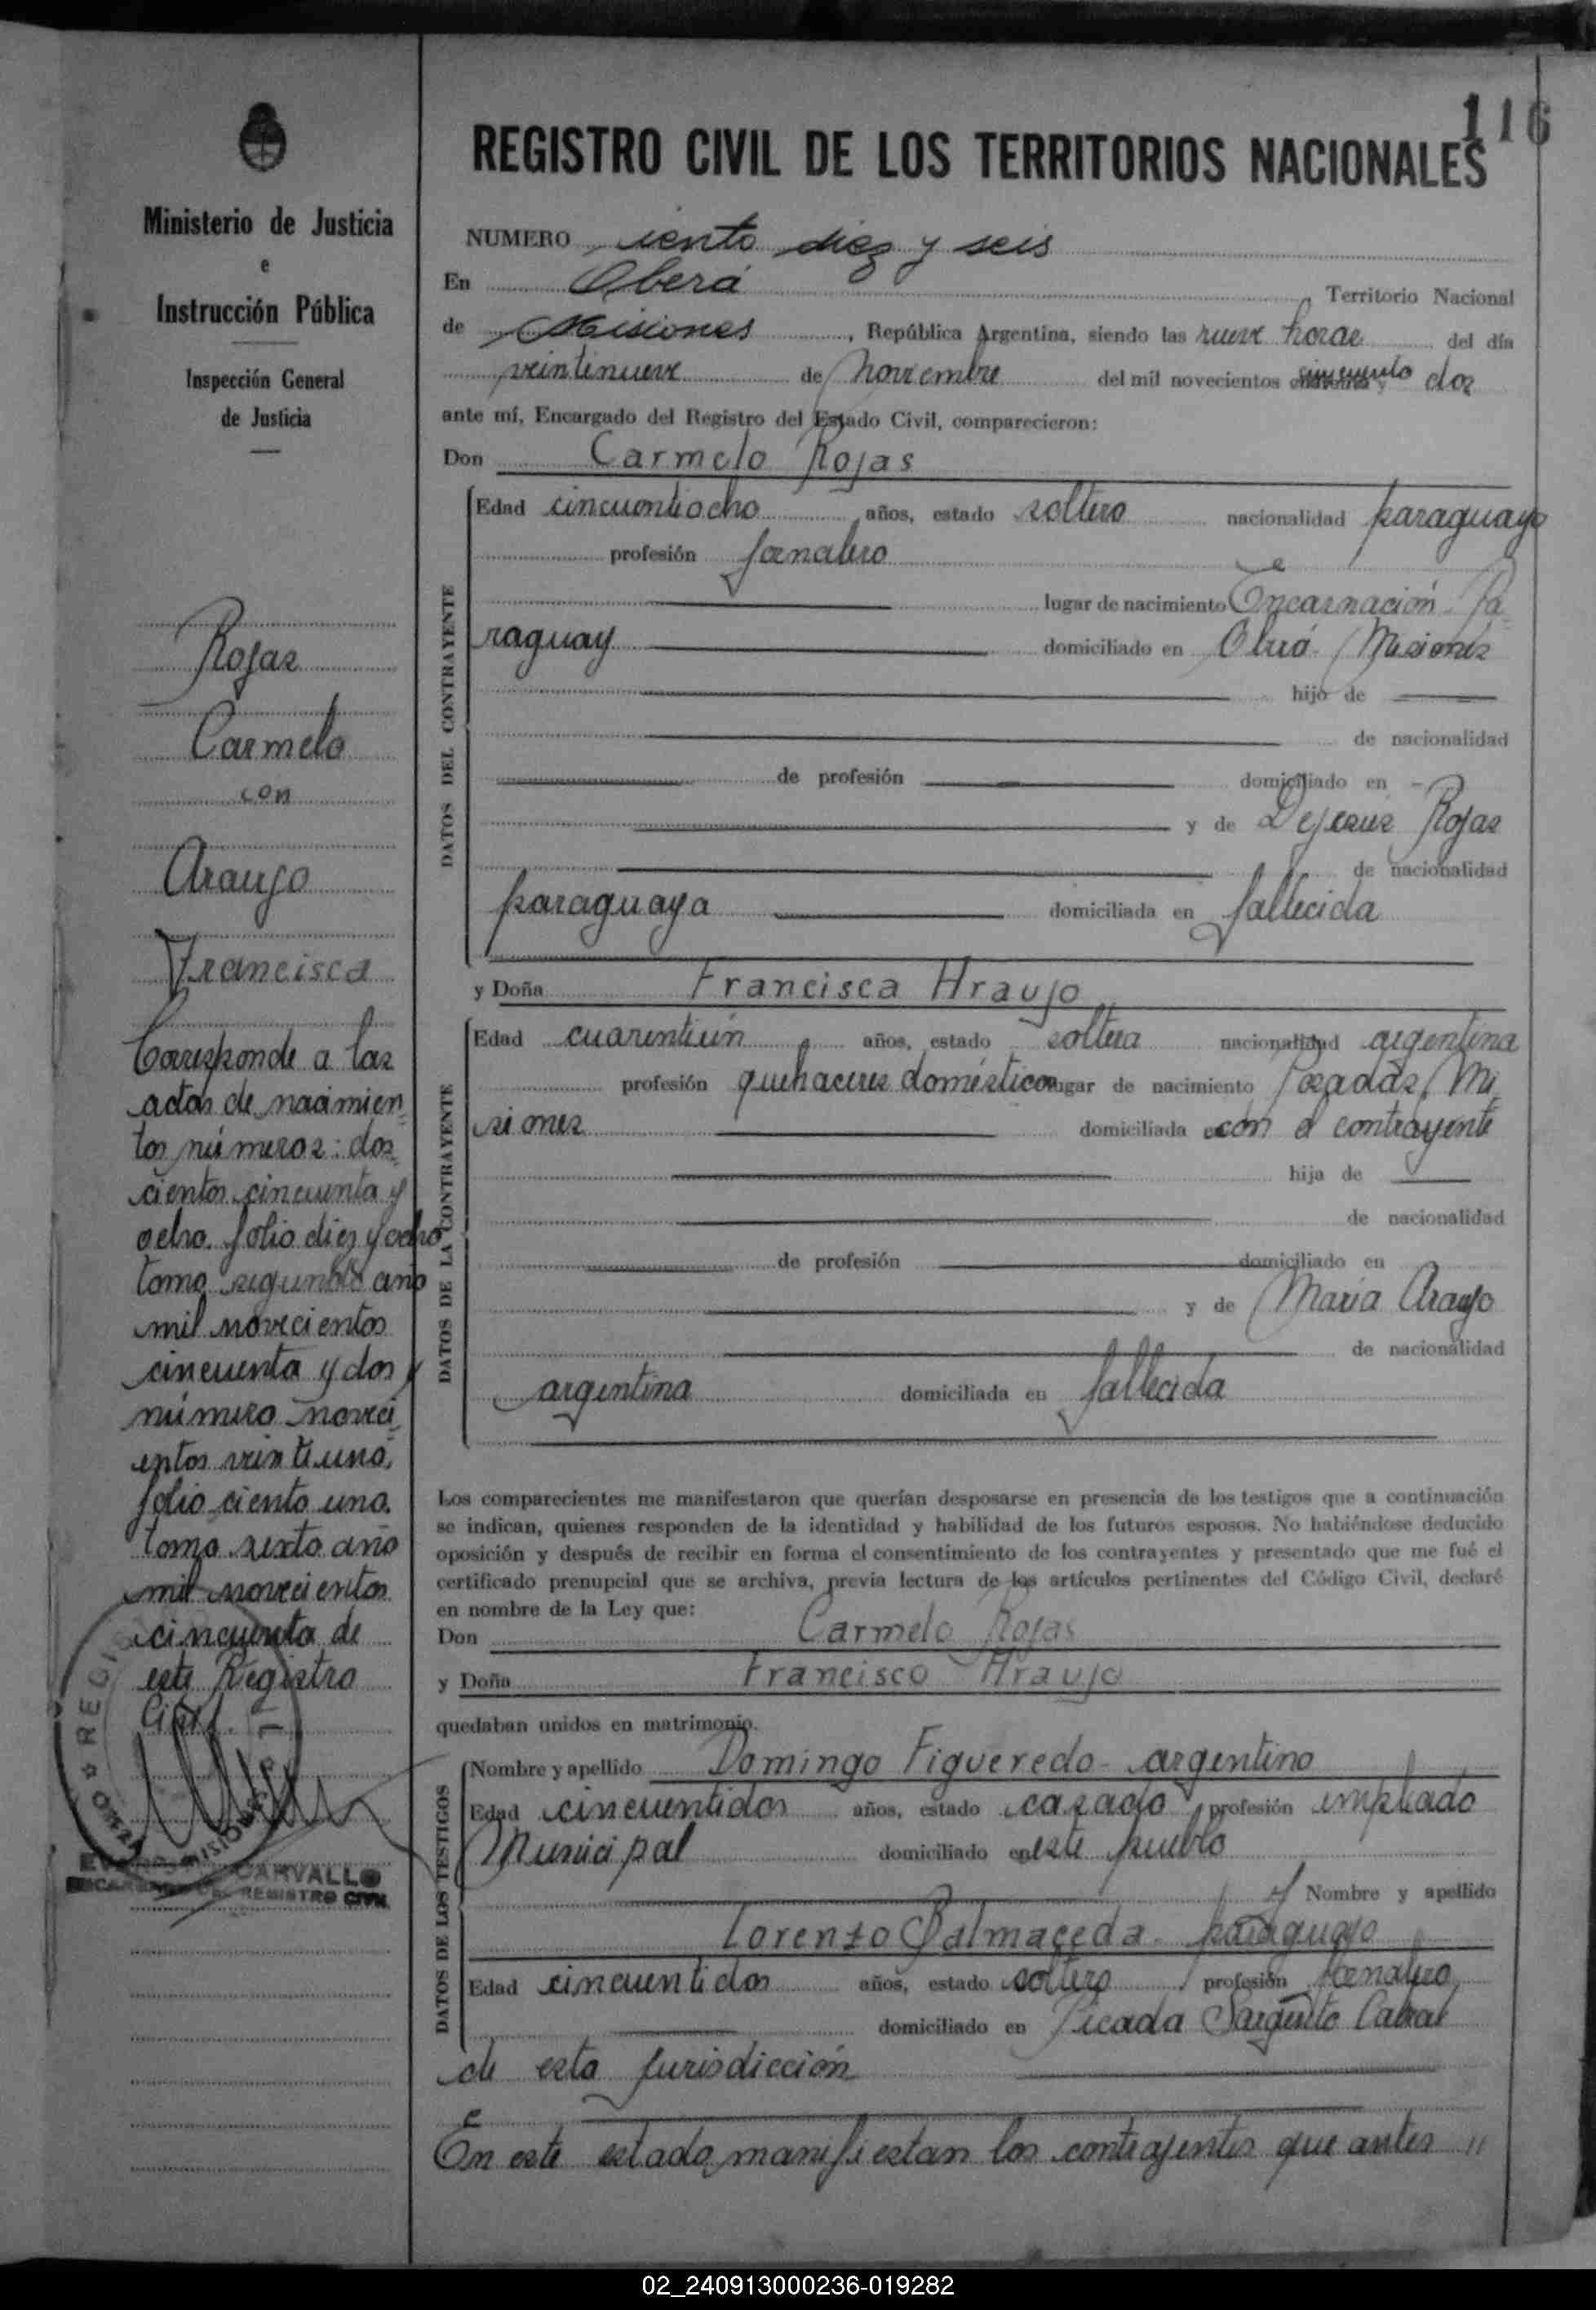 116
REGISTRO CIVIL DE LOS TERRITORIOS NACIONALES
Ministerio de Justicia
e
Instrucción Pública
Inspección General
de Justicia
Rojas
Carmelo
con
Araujo
Francisca
Corresponde a las
actas de nacimien
tos números: dos
cientos cincuenta y
ocho. folio diez y ocho
tomo segundo año
mil novecientos
cincuenta y dos y
número noveci
entos veintiuno,
folio ciento uno.
tomo sexto año
mil novecientos
cincuenta de
este Registro
Civil.
CARVALLO
REGISTRO CIVIL
NUMERO ciento diez y seis
En Oberá Territorio Nacional
de Misiones, República Argentina, siendo las nueve horas del día
veintinueve de noviembre del mil novecientos cincuenta dos
ante mí, Encargado del Registro del Estado Civil, comparecieron:
Don Carmelo Rojas
DATOS DEL CONTRAYENTE
Edad cincuentiocho años, estado soltero nacionalidad paraguayo
profesión jornalero
lugar de nacimiento Encarnación Pa
raguay domiciliado en Oberá Misiones
hijo de
de nacionalidad
de profesión domiciliado en
y de Dejesús Rojas
de nacionalidad
paraguaya domiciliada en fallecida
y Doña Francisca Araujo
DATOS DE LA CONTRAYENTE
Edad cuarentiún años, estado soltera nacionalidad argentina
profesión quehaceres domésticos lugar de nacimiento Posadas, Mi
siones domiciliada con el contrayente
hija de
de nacionalidad
de profesión domiciliado en
y de María Araujo
de nacionalidad
argentina domiciliada en fallecida
Los comparecientes me manifestaron que querían desposarse en presencia de los testigos que a continuación
se indican, quienes responden de la identidad y habilidad de los futuros esposos. No habiéndose deducido
oposición y después de recibir en forma el consentimiento de los contrayentes y presentado que me fué el
certificado prenupcial que se archiva, previa lectura de los artículos pertinentes del Código Civil, declaré
en nombre de la Ley que:
Don Carmelo Rojas
y Doña Francisco Araujo
quedaban unidos en matrimonio.
DATOS DE LOS TESTIGOS
Nombre y apellido Domingo Figueredo - argentino
Edad cincuentidos años, estado casado profesión empleado
Municipal domiciliado en este pueblo
y Nombre y apellido
Lorenzo Balmaceda - paraguayo
Edad cincuentidos años, estado soltero profesión jornalero
domiciliado en Picada Sargento Cabral
de esta jurisdicción
En este estado manifiestan los contrayentes que antes "
02_240913000236-019282